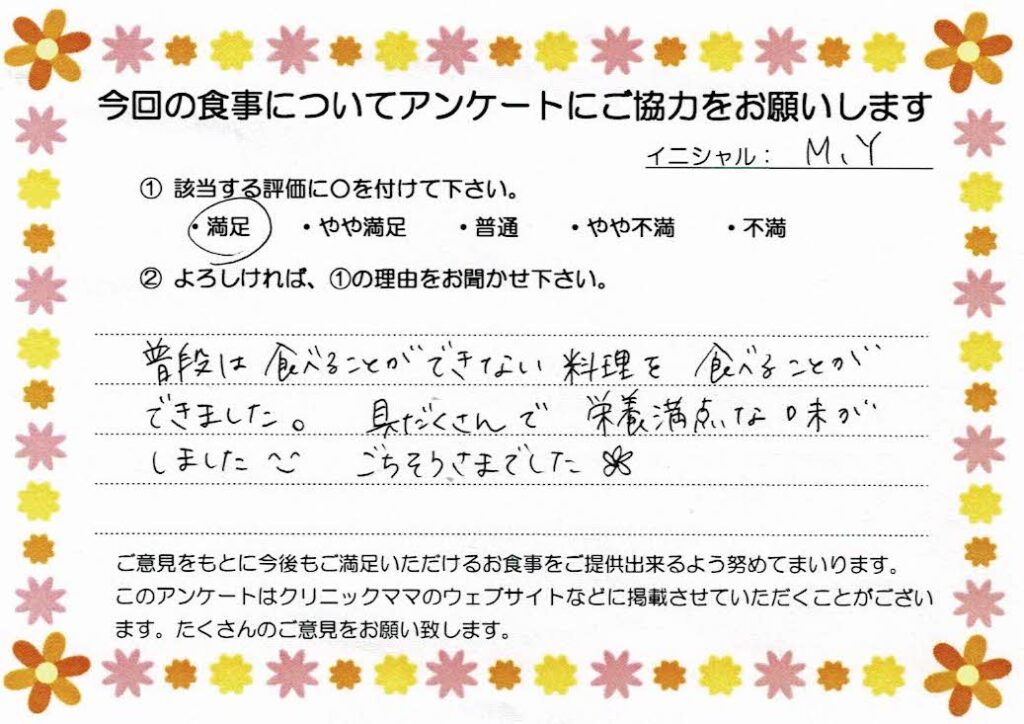 今回の食事についてアンケートにご協力をお願いします
イニシャル： M、Y
① 該当する評価に〇を付けて下さい。
・満足 ・やや満足 ・普通 ・やや不満 ・不満
② よろしければ、①の理由をお聞かせ下さい。
普段は食べることができてない料理を食べることが
できました。 具だくさんで 栄養満点な味が
しました ごちそうさまでした
ご意見をもとに今後もご満足いただけるお食事をご提供出来るよう努めてまいります。
このアンケートはクリニックママのウェブサイトなどに掲載させていただくことがござい
ます。たくさんのご意見をお願い致します。